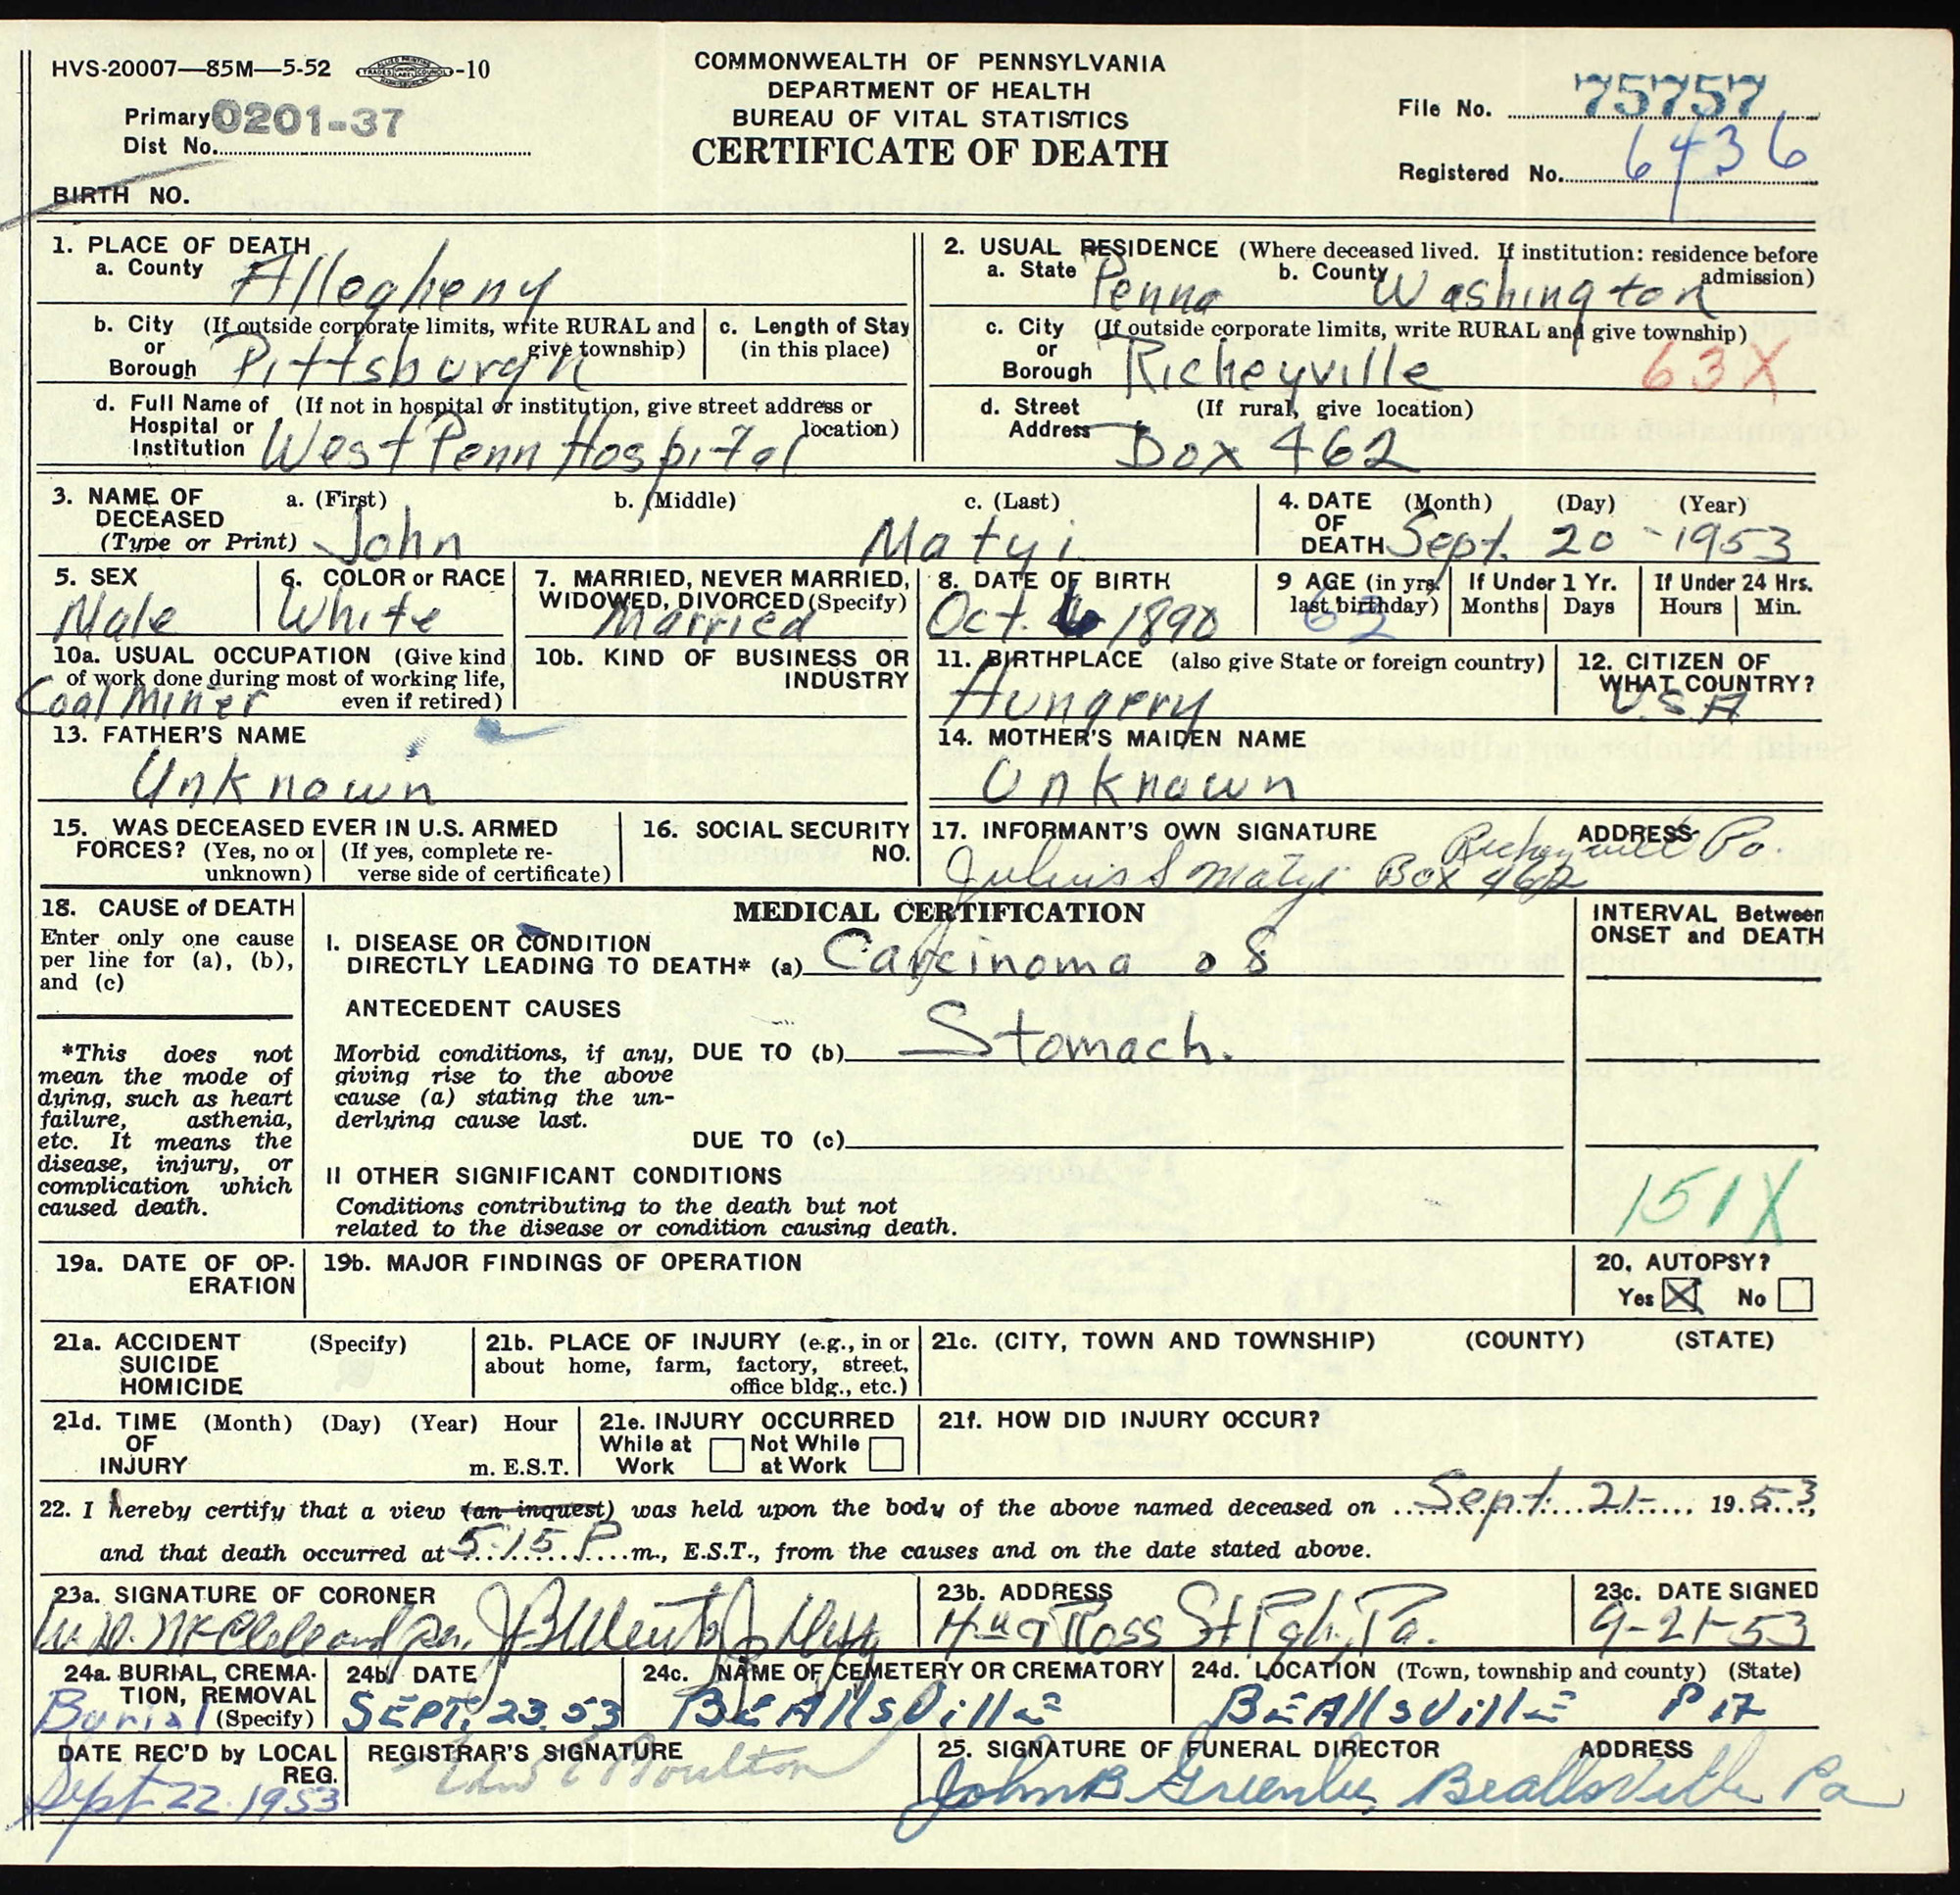 HVS-20007—85M—5-52 -10
COMMONWEALTH OF PENNSYLVANIA
DEPARTMENT OF HEALTH
BUREAU OF VITAL STATISTICS
CERTIFICATE OF DEATH
Primary
Dist No. 0201-37
BIRTH NO.
File No. 75757
Registered No. 6436
1. PLACE OF DEATH
a. County Allegheny
b. City or Borough (If outside corporate limits, write RURAL and give township) Pittsburgh
c. Length of Stay (in this place)
d. Full Name of Hospital or Institution (If not in hospital or institution, give street address or location) West Penn Hospital
2. USUAL RESIDENCE (Where deceased lived. If institution: residence before admission)
a. State Penna b. County Washington
c. City or Borough (If outside corporate limits, write RURAL and give township) Richeyville 63X
d. Street Address (If rural, give location) Box 462
3. NAME OF DECEASED (Type or Print) a. (First) John b. (Middle) c. (Last) Matyi
4. DATE OF DEATH (Month) (Day) (Year) Sept. 20 - 1953
5. SEX Male
6. COLOR or RACE White
7. MARRIED, NEVER MARRIED, WIDOWED, DIVORCED (Specify) Married
8. DATE OF BIRTH Oct. 6 1890
9 AGE (in yrs. last birthday) 62 If Under 1 Yr. Months Days If Under 24 Hrs. Hours Min.
10a. USUAL OCCUPATION (Give kind of work done during most of working life, even if retired) Coal Miner
10b. KIND OF BUSINESS OR INDUSTRY
11. BIRTHPLACE (also give State or foreign country) Hungery
12. CITIZEN OF WHAT COUNTRY? U.S.A
13. FATHER'S NAME Unknown
14. MOTHER'S MAIDEN NAME Unknown
15. WAS DECEASED EVER IN U.S. ARMED FORCES? (Yes, no or unknown) (If yes, complete reverse side of certificate)
16. SOCIAL SECURITY NO.
17. INFORMANT'S OWN SIGNATURE ADDRESS
Julius S Matyi Box 462 Richeyville Pa.
18. CAUSE of DEATH
Enter only one cause per line for (a), (b), and (c)
*This does not mean the mode of dying, such as heart failure, asthenia, etc. It means the disease, injury, or complication which caused death.
MEDICAL CERTIFICATION
I. DISEASE OR CONDITION
DIRECTLY LEADING TO DEATH* (a) Carcinoma of
ANTECEDENT CAUSES
Morbid conditions, if any, giving rise to the above cause (a) stating the underlying cause last.
DUE TO (b) Stomach.
DUE TO (c)
II OTHER SIGNIFICANT CONDITIONS
Conditions contributing to the death but not related to the disease or condition causing death.
INTERVAL Between ONSET and DEATH
151X
19a. DATE OF OPERATION
19b. MAJOR FINDINGS OF OPERATION
20. AUTOPSY?
Yes X No
21a. ACCIDENT SUICIDE HOMICIDE (Specify)
21b. PLACE OF INJURY (e.g., in or about home, farm, factory, street, office bldg., etc.)
21c. (CITY, TOWN AND TOWNSHIP) (COUNTY) (STATE)
21d. TIME OF INJURY (Month) (Day) (Year) Hour m. E.S.T.
21e. INJURY OCCURRED While at Work Not While at Work
21f. HOW DID INJURY OCCUR?
22. I hereby certify that a view (an inquest) was held upon the body of the above named deceased on Sept. 21- 19 53,
and that death occurred at 5:15 P m., E.S.T., from the causes and on the date stated above.
23a. SIGNATURE OF CORONER
W.D. McClelland
23b. ADDRESS
Ross St Pgh, Pa.
23c. DATE SIGNED
9-21-53
24a. BURIAL, CREMATION, REMOVAL (Specify) Burial
24b. DATE SEPT. 23. 53
24c. NAME OF CEMETERY OR CREMATORY BEAllsVillE
24d. LOCATION (Town, township and county) (State) BEAllsVillE PA
DATE REC'D by LOCAL REG.
Sept 22. 1953
REGISTRAR'S SIGNATURE
Moulton
25. SIGNATURE OF FUNERAL DIRECTOR ADDRESS
John B Greenlee, Beallsville Pa